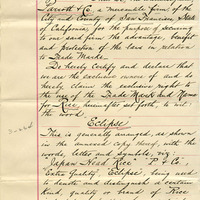 Parrott & Co. a mercantile firm of the
City and County of San Francisco, State
of California, for the purpose of securing
to our said firm the advantage, benefit
and protection of the laws in relation
to Trade Marks.
Do hereby Certify and declare that
we are the exclusive owners of and do
hereby claim the exclusive right to
the use of the Trade Mark and Name
for Rice, hereinafter set forth, to wit:
the word
"Eclipse"
This is generally arranged, as shown
in the annexed copy thereof, with the
words, letters and symbols,
"Japan Head Rice" "P. & Co."
"Extra Quality" "Eclipse", being used
to denote and distinguish a certain
kind, quality or brand of Rice